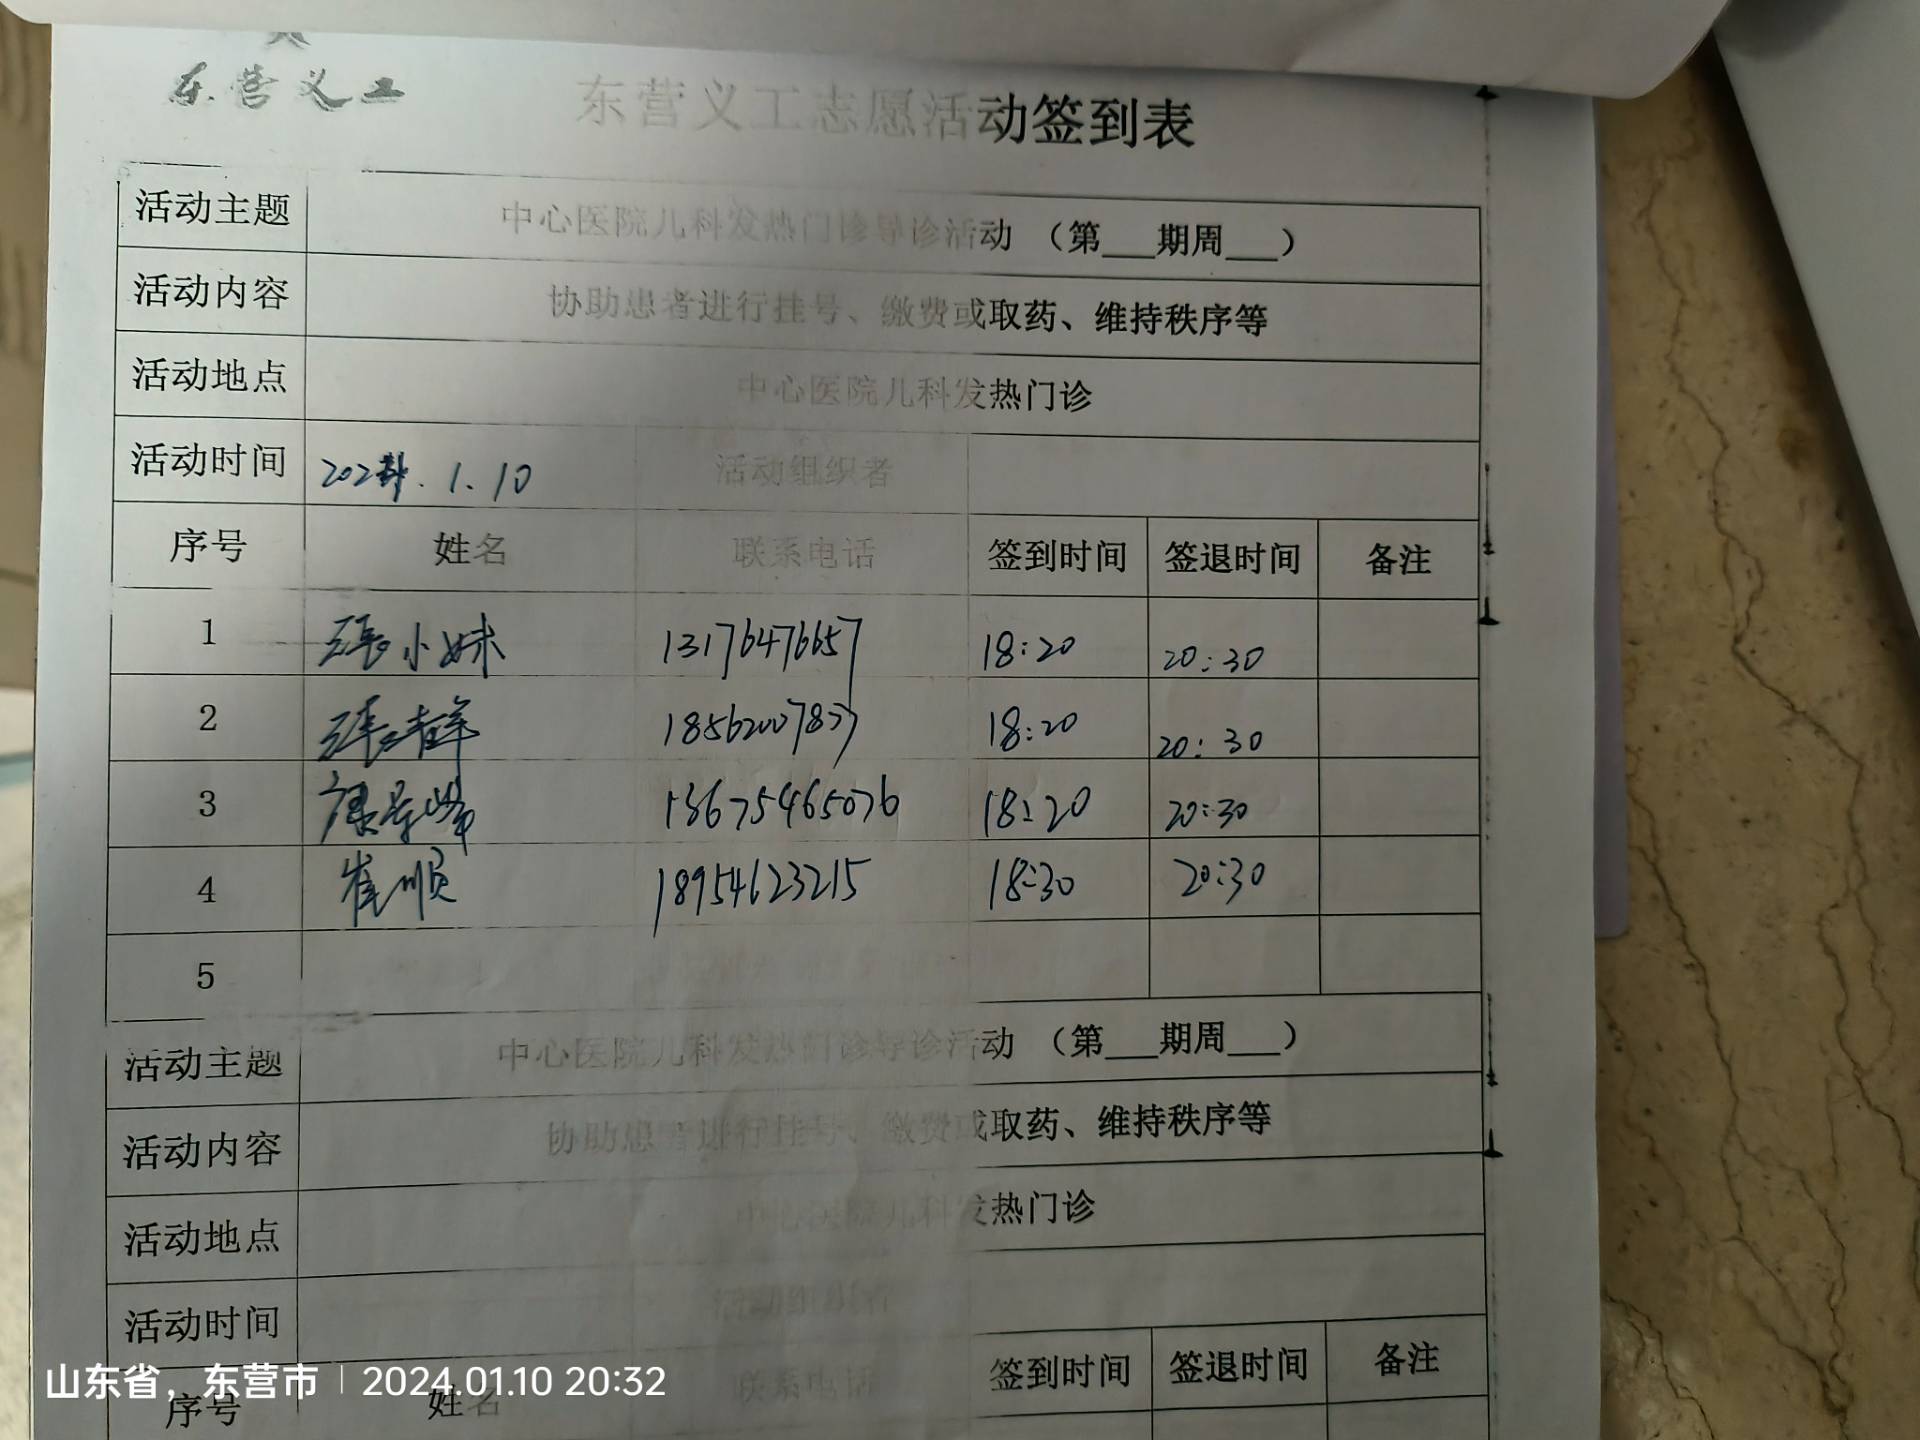 东营义工
东营义工志愿活动签到表
活动主题 中心医院儿科发热门诊导诊活动 （第___期周___）
活动内容 协助患者进行挂号、缴费或取药、维持秩序等
活动地点 中心医院儿科发热门诊
活动时间 2024.1.10 活动组织者
序号 姓名 联系电话 签到时间 签退时间 备注
1 张小妹 13176476657 18:20 20:30
2 张 18:20 20:30
3 康景峰 13675465076 18:20 20:30
4 崔顺 18954623215 18:30 20:30
5
活动主题 中心医院儿科发热门诊导诊活动 （第___期周___）
活动内容 协助患者进行挂号、缴费或取药、维持秩序等
活动地点 中心医院儿科发热门诊
活动时间 活动组织者
序号 姓名 联系电话 签到时间 签退时间 备注
山东省，东营市 | 2024.01.10 20:32